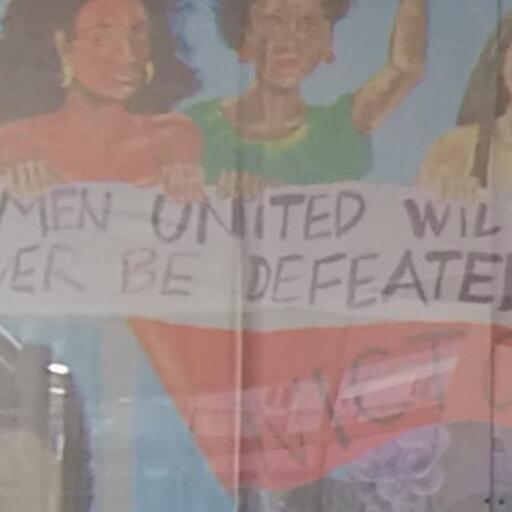 MEN UNITED WIL
ER BE DEFEATE
VICTO